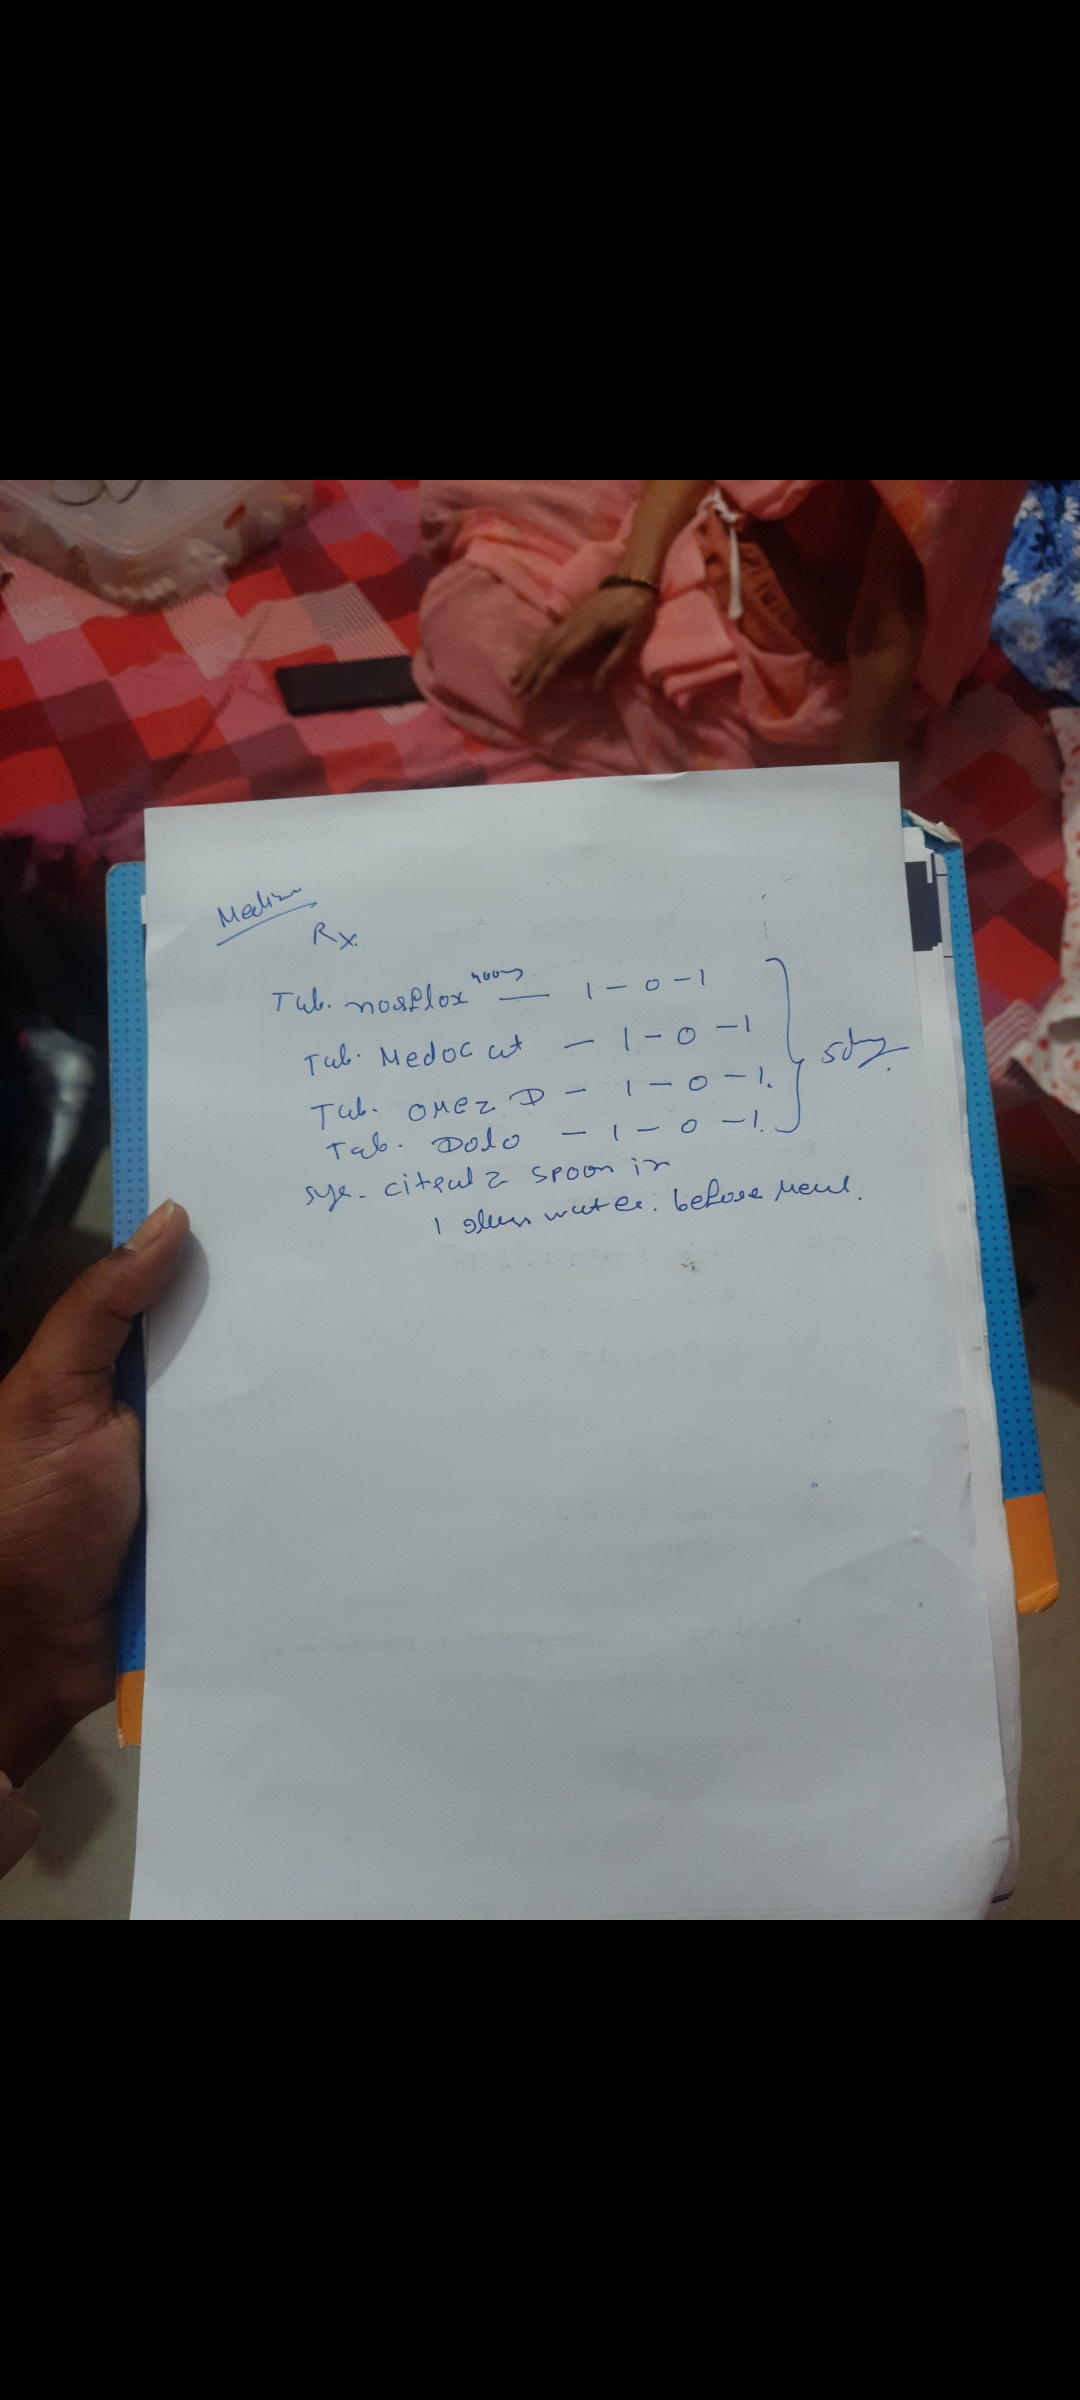 Medicine
Rx.
Tab. norflox 400mg — 1 - 0 - 1
Tab. Medoc at — 1 - 0 - 1
Tab. Omez D — 1 - 0 - 1.
Tab. Dolo — 1 - 0 - 1.
5 day.
Syr. citral 2 spoon in
1 glass water. before meal.